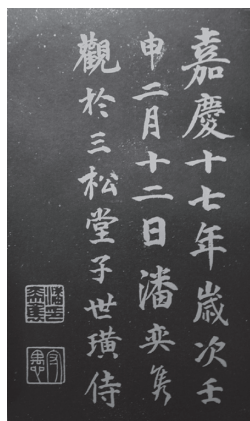 嘉慶十七年歲次壬
申二月十二日潘奕雋
觀於三松堂子世璜侍